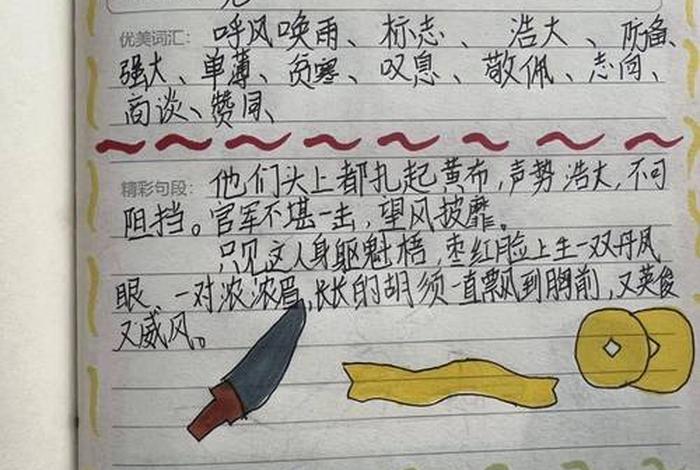 优美词汇: 呼风唤雨、标志、浩大、防备、
强大、单薄、贫寒、叹息、敬佩、志向、
商谈、赞同、
精彩句段: 他们头上都扎起黄布,声势浩大,不可
阻挡。官军不堪一击,望风披靡。
只见这人身躯魁梧,枣红脸上生一双丹凤
眼、一对浓浓眉,长长的胡须一直飘到胸前,又英俊
又威风。